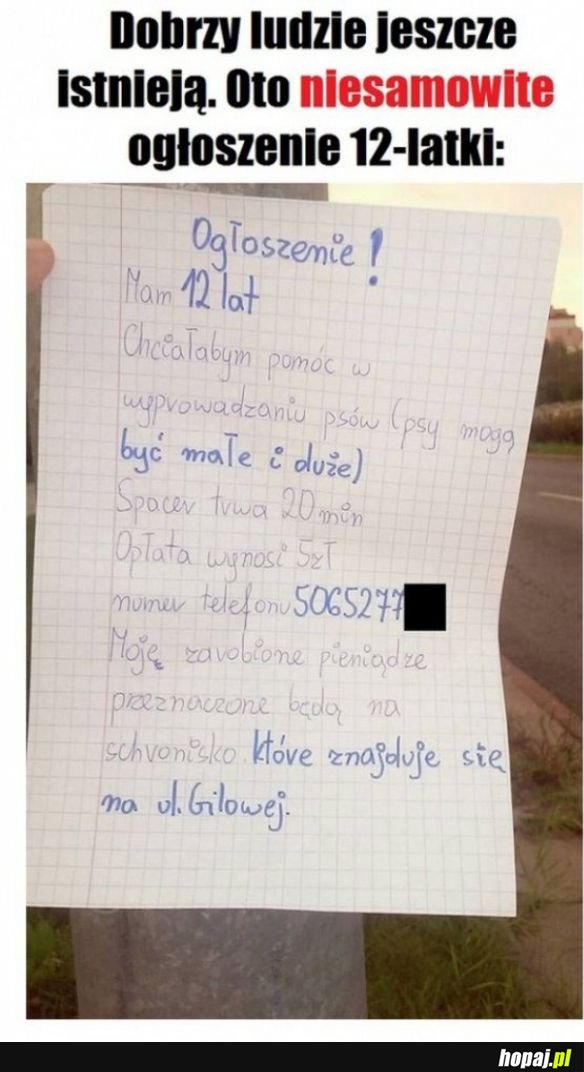 Dobrzy ludzie jeszcze
istnieją. Oto niesamowite
ogłoszenie 12-latki:
Ogłoszenie!
Mam 12 lat
Chciałabym pomóc w
wyprowadzaniu psów (psy mogą
być małe i duże)
Spacer trwa 20 min
Opłata wynosi 5zł
numer telefonu 5065277
Moję zarobione pieniądze
przeznaczone będą na
schronisko które znajduje się
na ul. Gilowej.
hopaj.pl